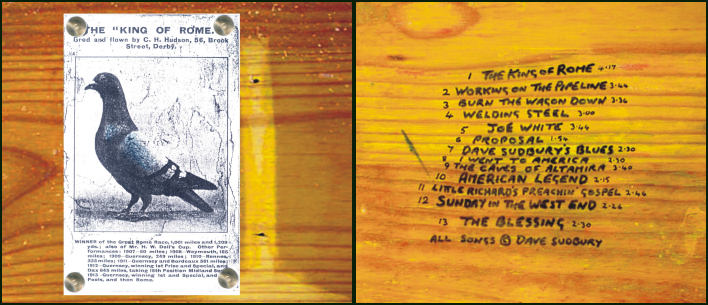 THE "KING OF ROME."
Bred and flown by C. H. Hudson, 56, Brook
Street, Derby.
WINNER of the Great Rome Race, 1,001 miles and 1,209
yds.; also of Mr. H. W. Doll's Cup. Other Per-
formances: 1907-80 miles; 1908-Weymouth, 165
miles; 1909-Guernsey, 249 miles; 1910-Rennes,
325 miles; 1911-Guernsey and Bordeaux 561 miles;
1912-Guernsey, winning 1st Prize and Special, and
Dax 645 miles, taking 18th Position Midland
1913-Guernsey, winning 1st and Special, and
Pools, and then Rome.
1 THE KING OF ROME 4·17
2 WORKING ON THE PIPELINE 3·44
3 BURN THE WAGON DOWN 3·36
4 WELDING STEEL 3·00
5 JOE WHITE 3·44
6 PROPOSAL 1·54
7 DAVE SUDBURY'S BLUES 2·30
8 I WENT TO AMERICA 2·30
9 THE CAVES OF ALTAMIRA 3·40
10 AMERICAN LEGEND 2·15
11 LITTLE RICHARD'S PREACHIN' GOSPEL 2·46
12 SUNDAY IN THE WEST END 2·26
13 THE BLESSING 2·30
ALL SONGS © DAVE SUDBURY